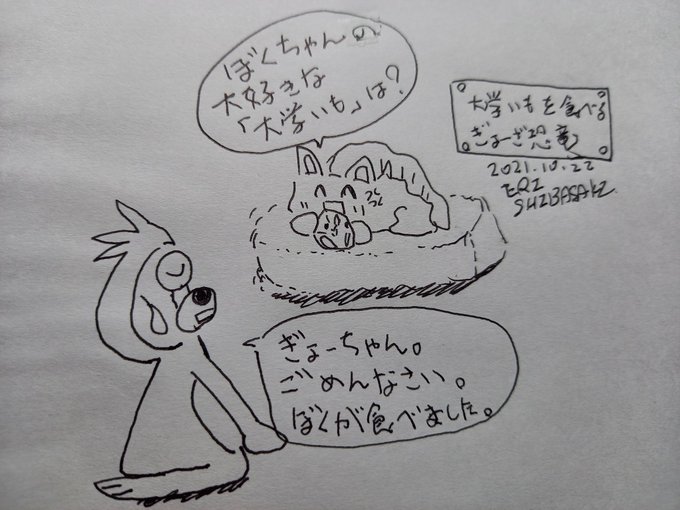 ぼくちゃんの
大好きな
「大学いも」は?
大学いもを食べる
ぎょーざ恐竜
2021.10.22
ERI
SHIBASAKI
ぎょーちゃん。
ごめんなさい。
ぼくが食べました。